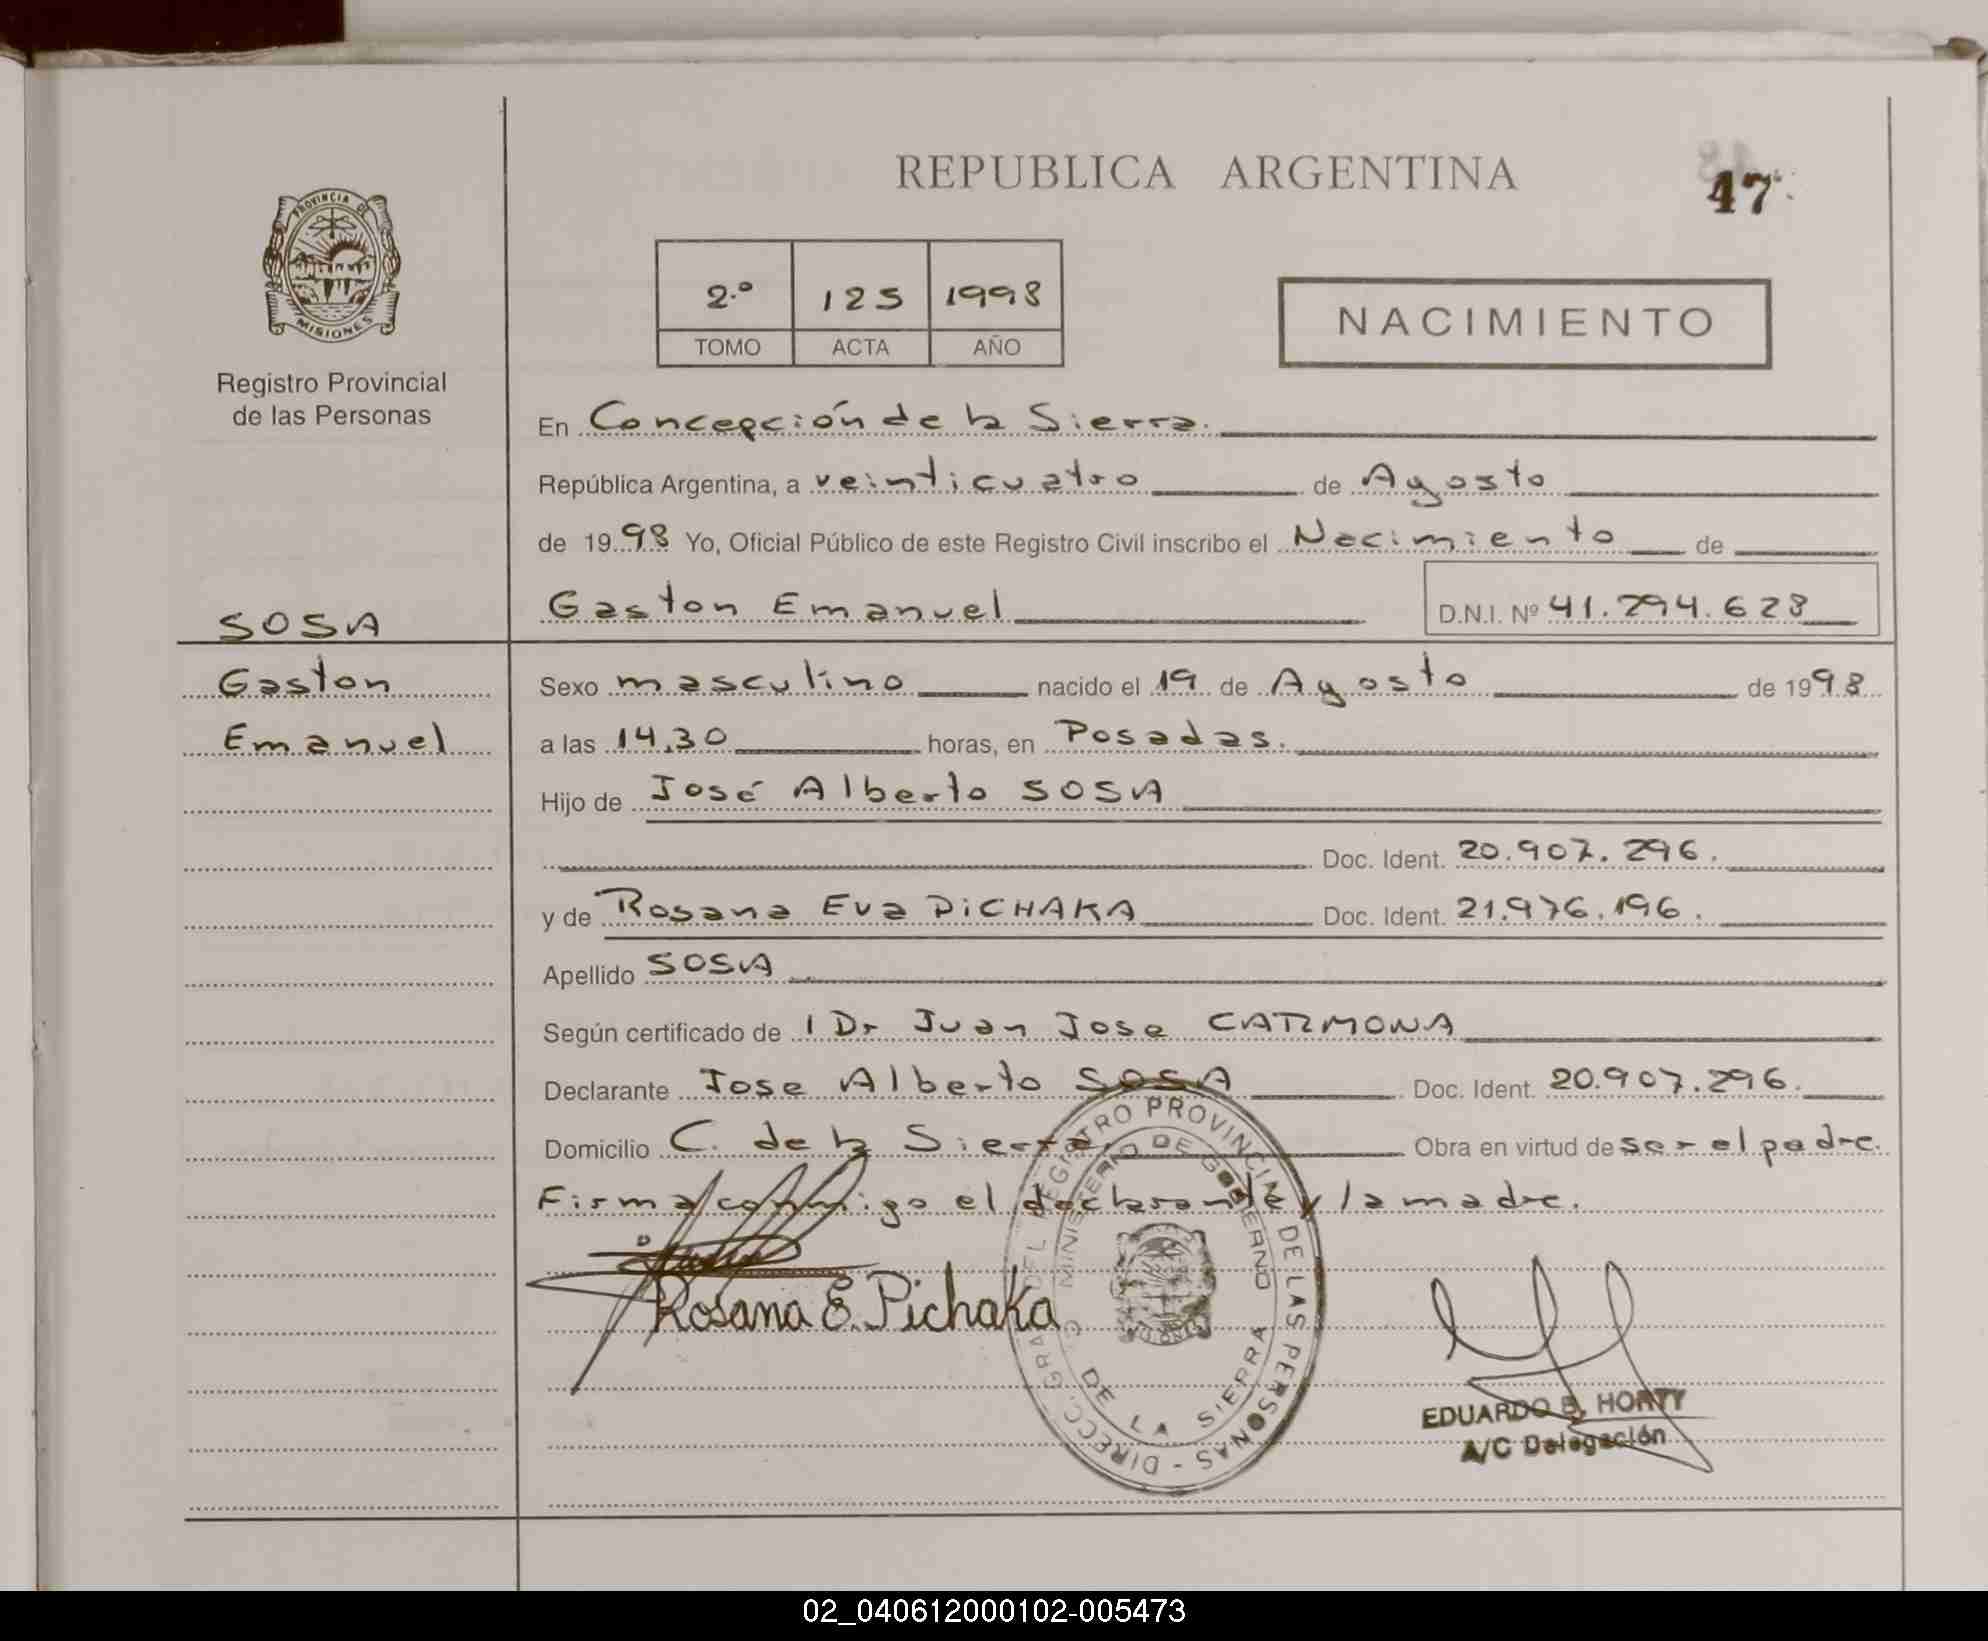 REPUBLICA ARGENTINA
47
PROVINCIA DE
MISIONES
Registro Provincial
de las Personas
2.º 125 1998
TOMO ACTA AÑO
NACIMIENTO
En Concepción de la Sierra.
República Argentina, a veinticuatro de Agosto
de 1998 Yo, Oficial Público de este Registro Civil inscribo el Nacimiento de
Gaston Emanuel D.N.I. Nº 41.294.628
SOSA
Gaston
Emanuel
Sexo masculino nacido el 19 de Agosto de 1998
a las 14,30 horas, en Posadas.
Hijo de José Alberto SOSA
Doc. Ident. 20.907.296.
y de Rosana Eva PiCHAKA Doc. Ident. 21.976.196.
Apellido SOSA
Según certificado de l Dr Juan Jose CARMONA
Declarante Jose Alberto SOSA Doc. Ident. 20.907.296.
Domicilio C. de la Sierra, Obra en virtud de ser el padre.
Firma conmigo el declarante y la madre.
Rosana E. Pichaka
DIRECC. GRAL DEL REGISTRO PROVINCIAL DE LAS PERSONAS -
MINISTERIO DE GOBIERNO
DE LA SIERRA
EDUARDO B. HORTY
A/C Delegación
02_040612000102-005473